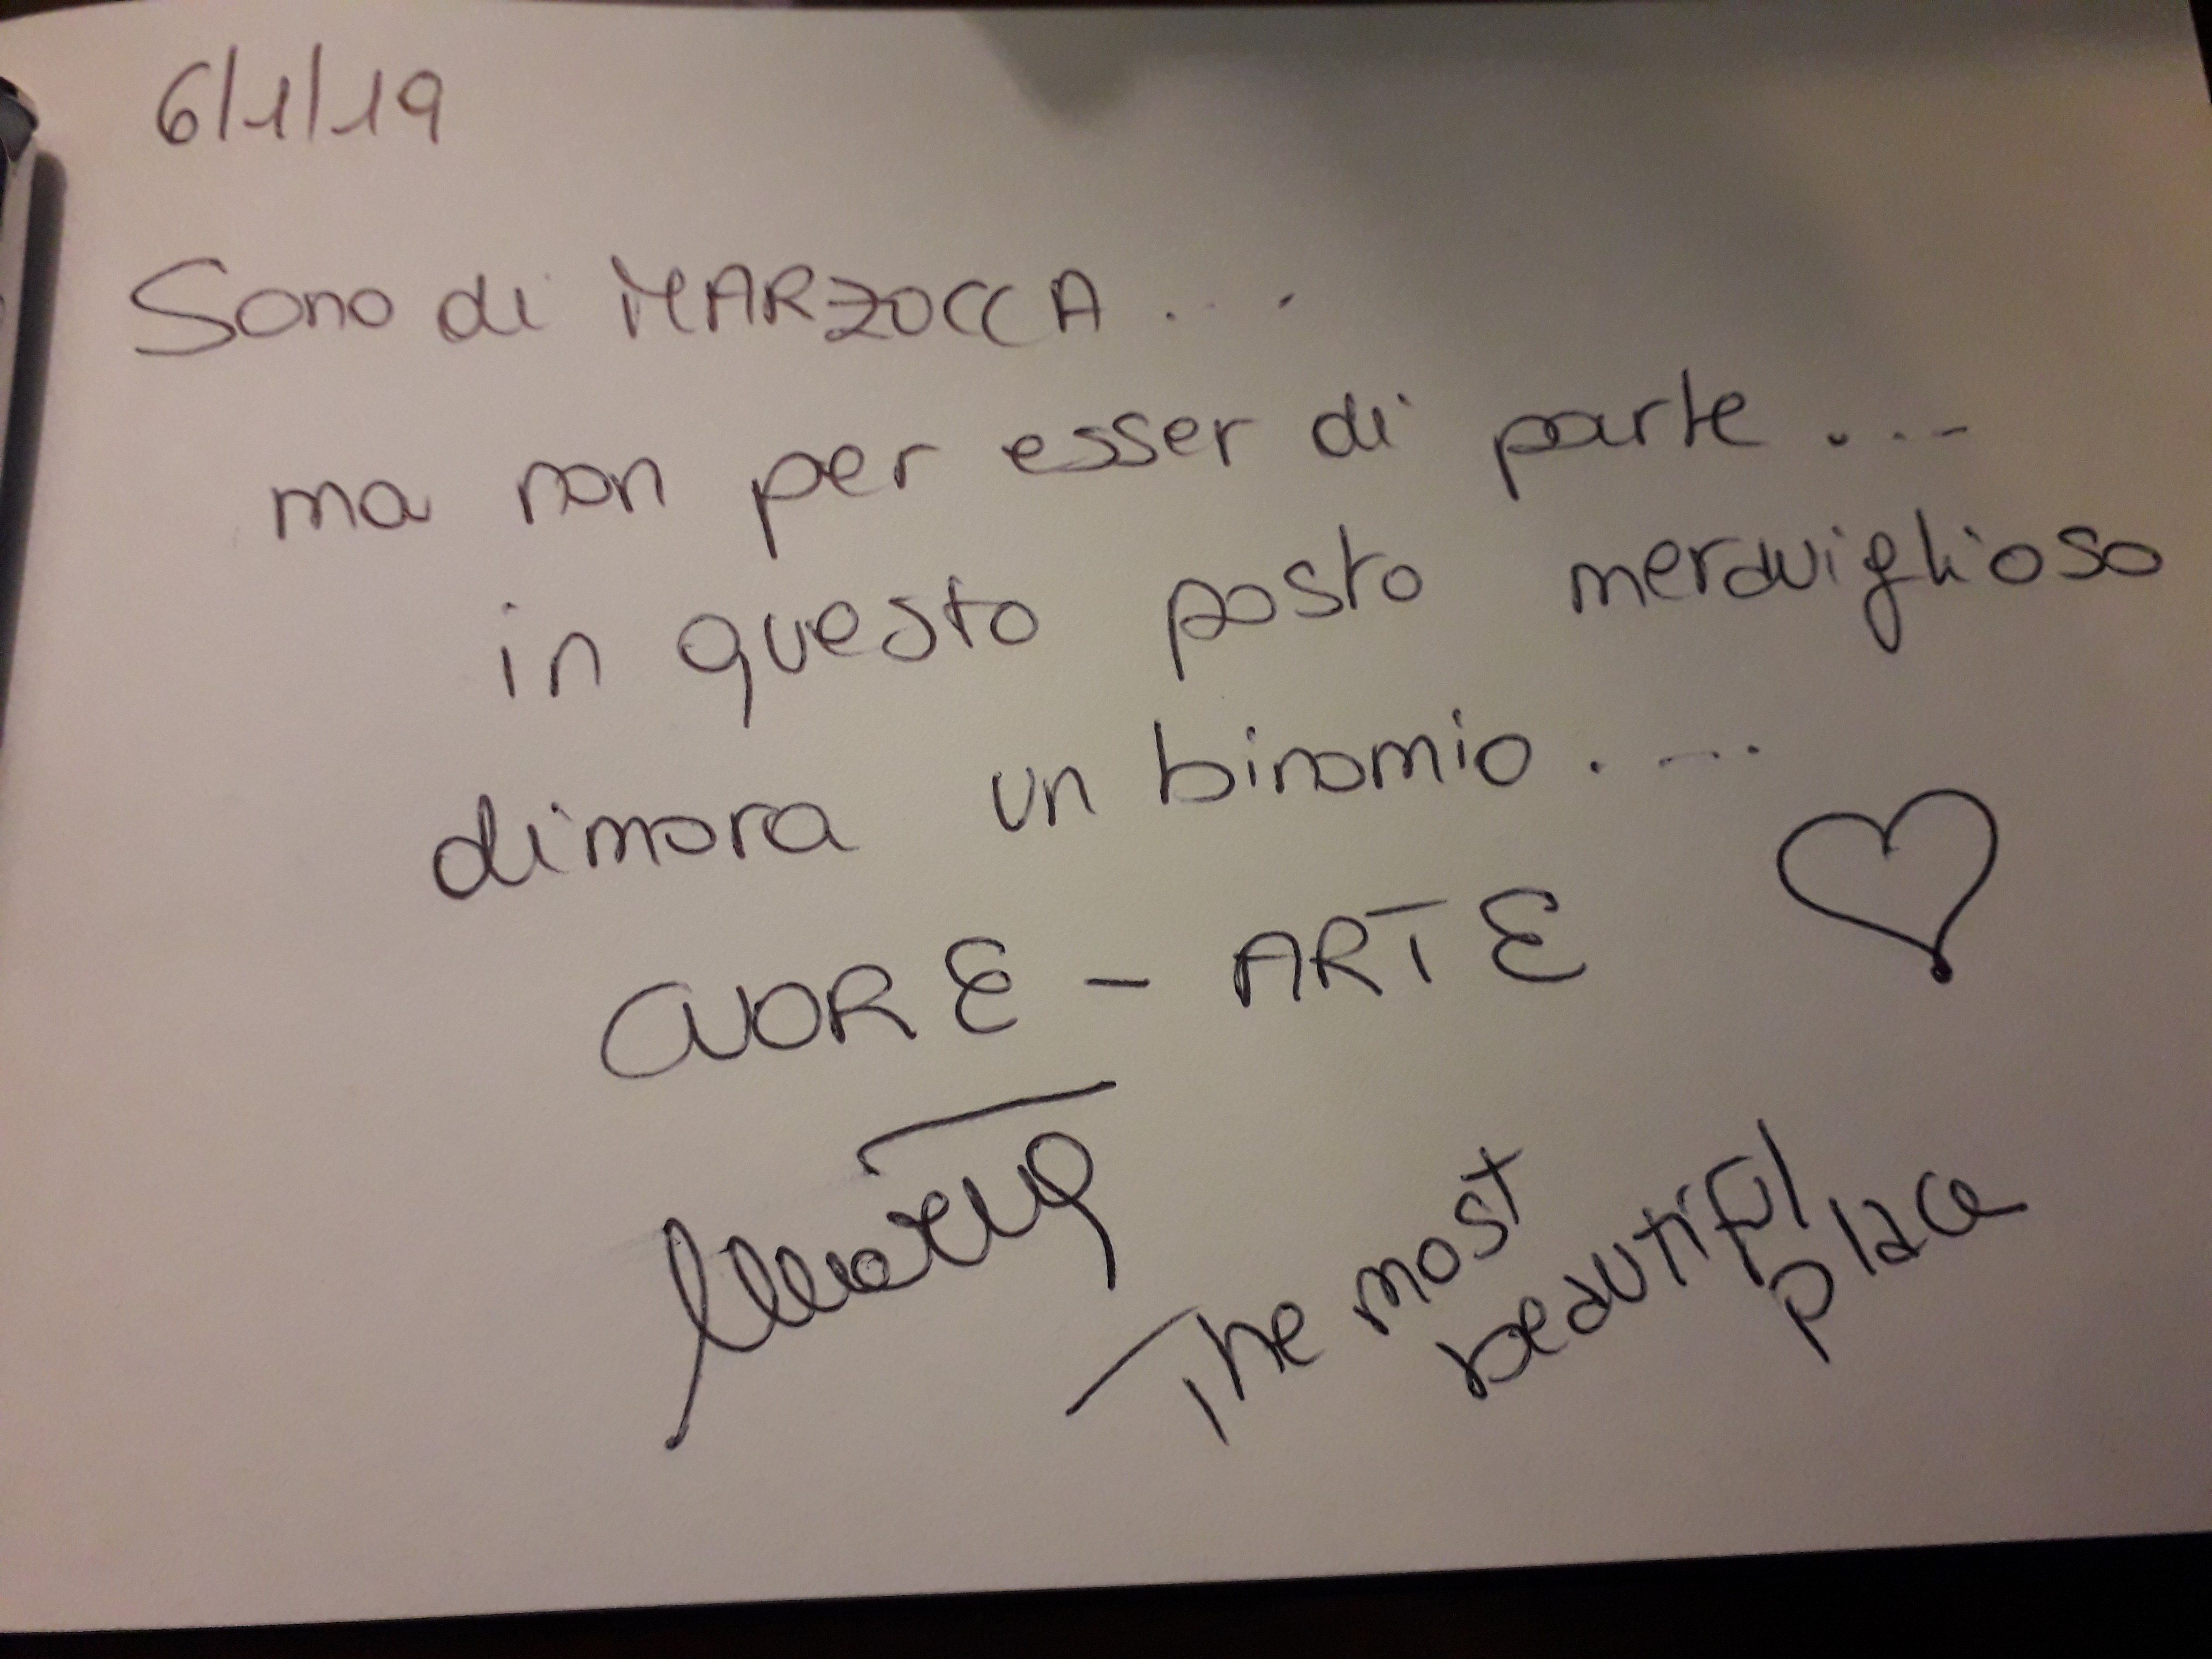 6/1/19
Sono di MARZOCCA ...
ma non per esser di parte ...
in questo posto meraviglioso
dimora un binomio ....
CUORE - ARTE
The most
beautiful
place